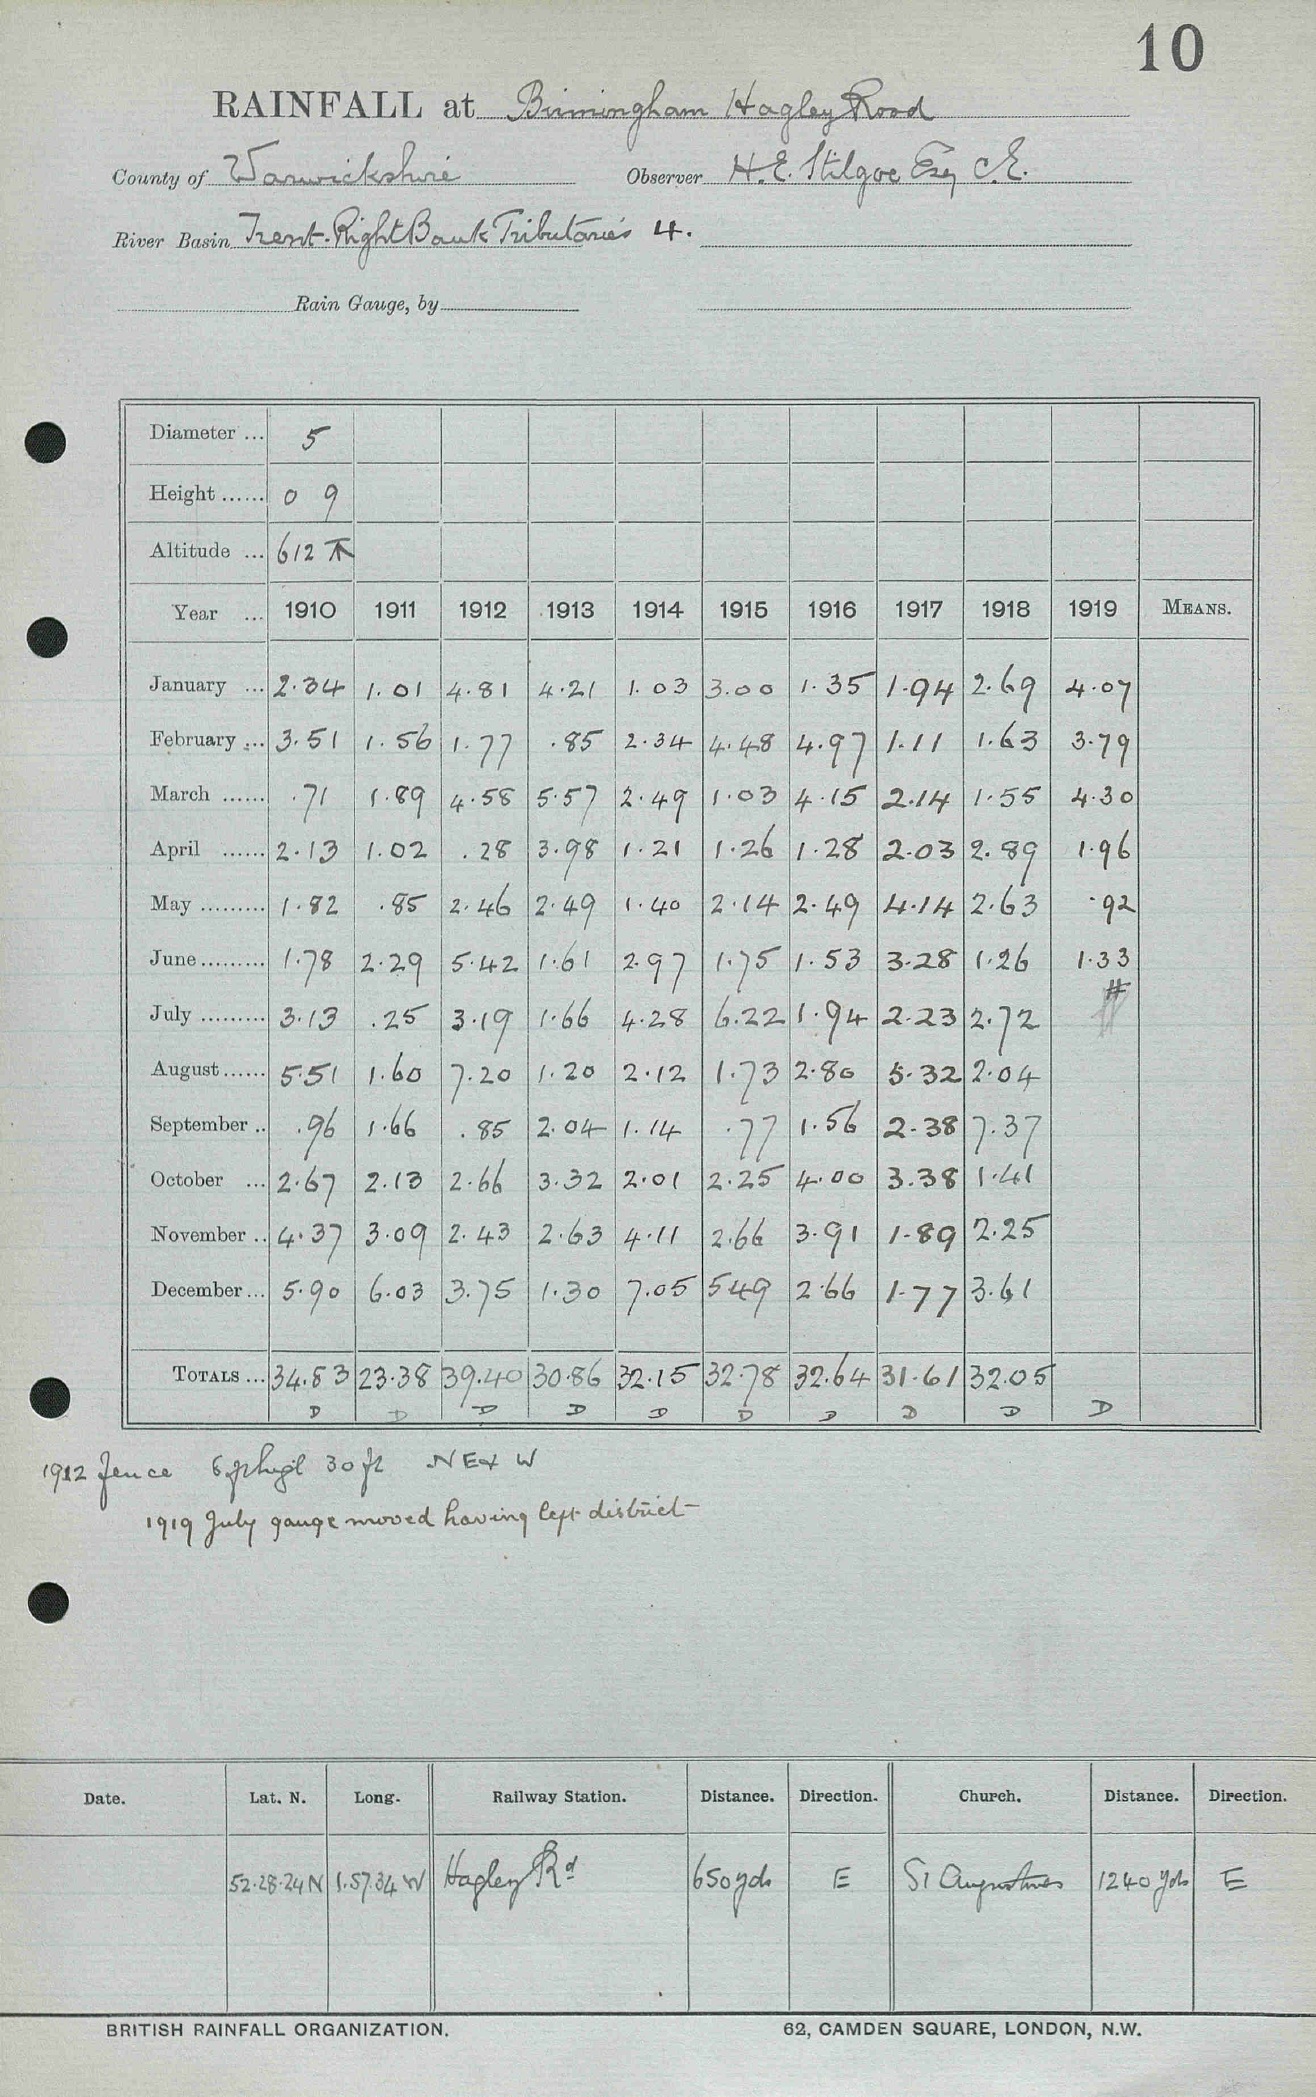 10
RAINFALL at Birmingham Hagley Road
County of Warwickshire Observer H.E. Stilgoe Esq C.E.
River Basin Trent-Right Bank Tributaries 4.
Rain Gauge, by
Diameter ... 5
Height ...... 0 9
Altitude ... 612
Year ... 1910 1911 1912 1913 1914 1915 1916 1917 1918 1919 MEANS.
January ... 2.34 1.01 4.81 4.21 1.03 3.00 1.35 1.94 2.69 4.07
February ... 3.51 1.56 1.77 .85 2.34 4.48 4.97 1.11 1.63 3.79
March ...... .71 1.89 4.58 5.57 2.49 1.03 4.15 2.14 1.55 4.30
April ...... 2.13 1.02 .28 3.98 1.21 1.26 1.28 2.03 2.89 1.96
May ......... 1.82 .85 2.46 2.49 1.40 2.14 2.49 4.14 2.63 .92
June ......... 1.78 2.29 5.42 1.61 2.97 1.75 1.53 3.28 1.26 1.33
July ......... 3.13 .25 3.19 1.66 4.28 6.22 1.94 2.23 2.72 #
August ...... 5.51 1.60 7.20 1.20 2.12 1.73 2.80 5.32 2.04
September .. .96 1.66 .85 2.04 1.14 .77 1.56 2.38 7.37
October ... 2.67 2.13 2.66 3.32 2.01 2.25 4.00 3.38 1.41
November .. 4.37 3.09 2.43 2.63 4.11 2.66 3.91 1.89 2.25
December ... 5.90 6.03 3.75 1.30 7.05 549 2.66 1.77 3.61
TOTALS ... 34.83 23.38 39.40 30.86 32.15 32.78 32.64 31.61 32.05
D D D D D D D D D D
1912 fence 30 ft NE & W
1919 July gauge moved having left district
Date. Lat. N. Long. Railway Station. Distance. Direction. Church. Distance. Direction.
52.28.24 N 1.57.34 W Hagley Rd 650 yds E St Augustines 1240 yds E
BRITISH RAINFALL ORGANIZATION. 62, CAMDEN SQUARE, LONDON, N.W.